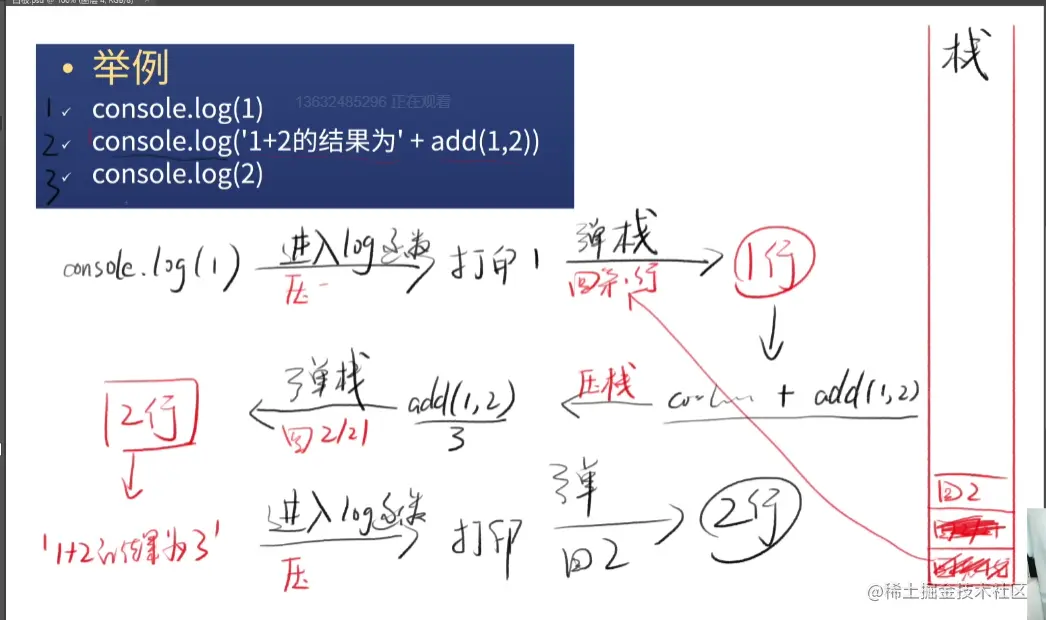 栈
• 举例
1 ✓ console.log(1)
13632485296 正在观看
2 ✓ console.log('1+2的结果为' + add(1,2))
3 ✓ console.log(2)
console.log(1) 进入log函数 打印1 弹栈 1行
压 回第1行
2行 弹栈 add(1,2) 压栈 + add(1,2)
回 3
'1+2的结果为3' 进入log函数 打印 弹 2行
压 回2
回2
@稀土掘金技术社区